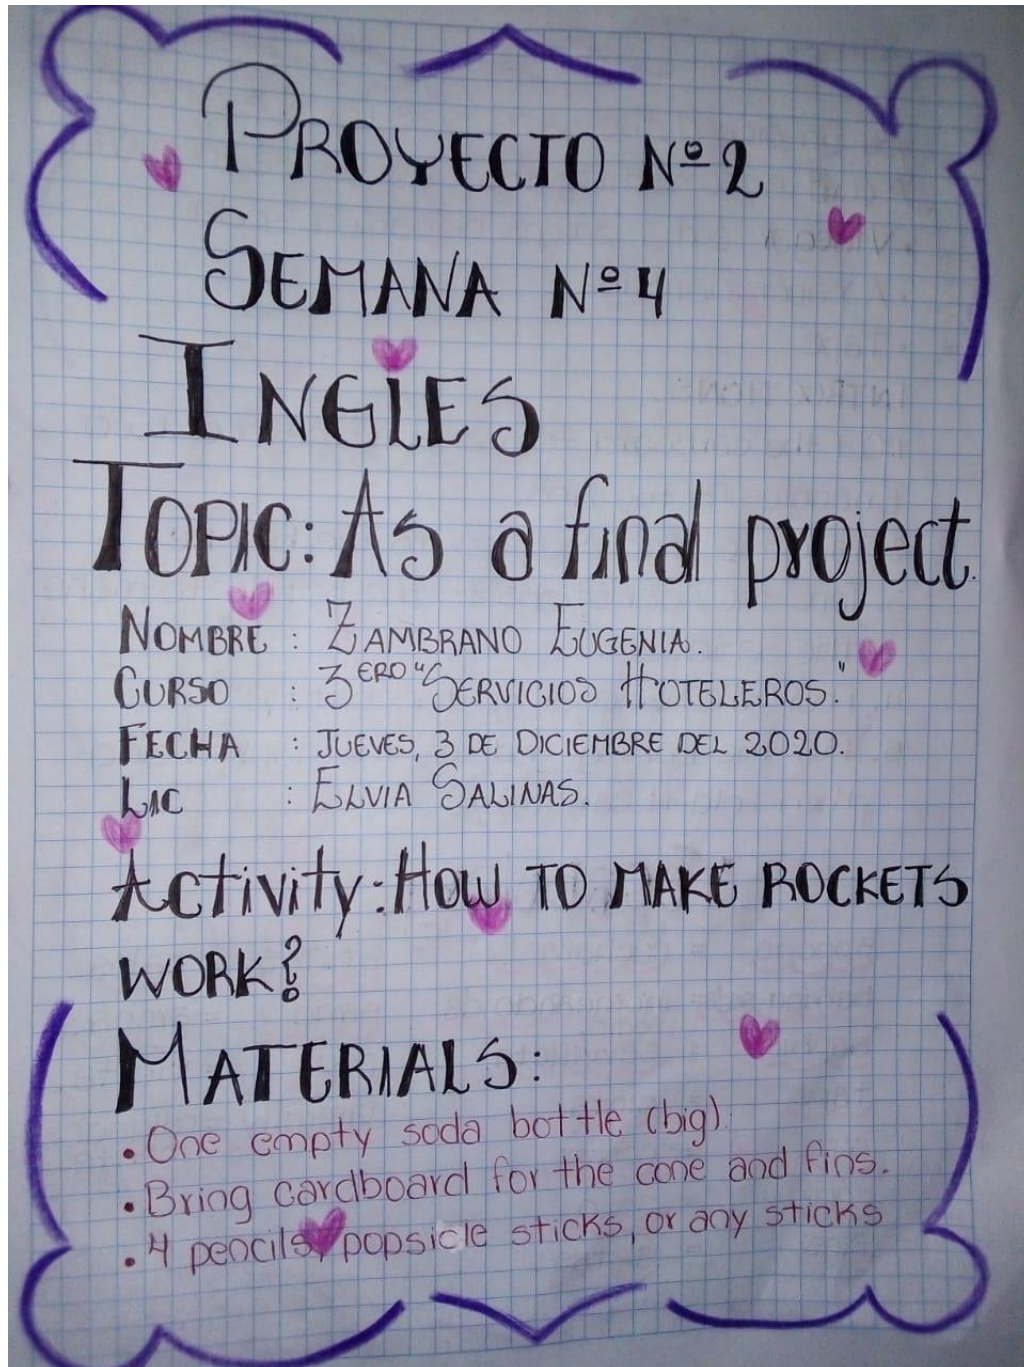 PROYECTO Nº 2
SEMANA Nº 4
INGLES
TOPIC: As a final project.
NOMBRE : ZAMBRANO EUGENIA.
CURSO : 3ERO "SERVICIOS HOTELEROS."
FECHA : JUEVES, 3 DE DICIEMBRE DEL 2020.
LIC : ELVIA SALINAS.
Activity: HOW TO MAKE ROCKETS
WORK?
MATERIALS:
• One empty soda bottle (big).
• Bring cardboard for the cone and fins.
• 4 pencils, popsicle sticks, or any sticks